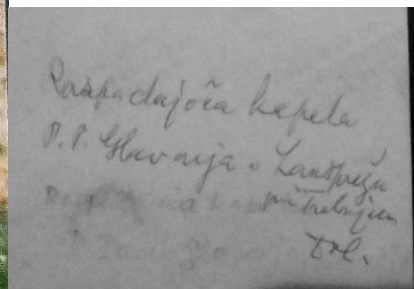 Razpadajoča kapela
P. P. Glavarja v Lanšprežu
pri Trebnjem
Dol.